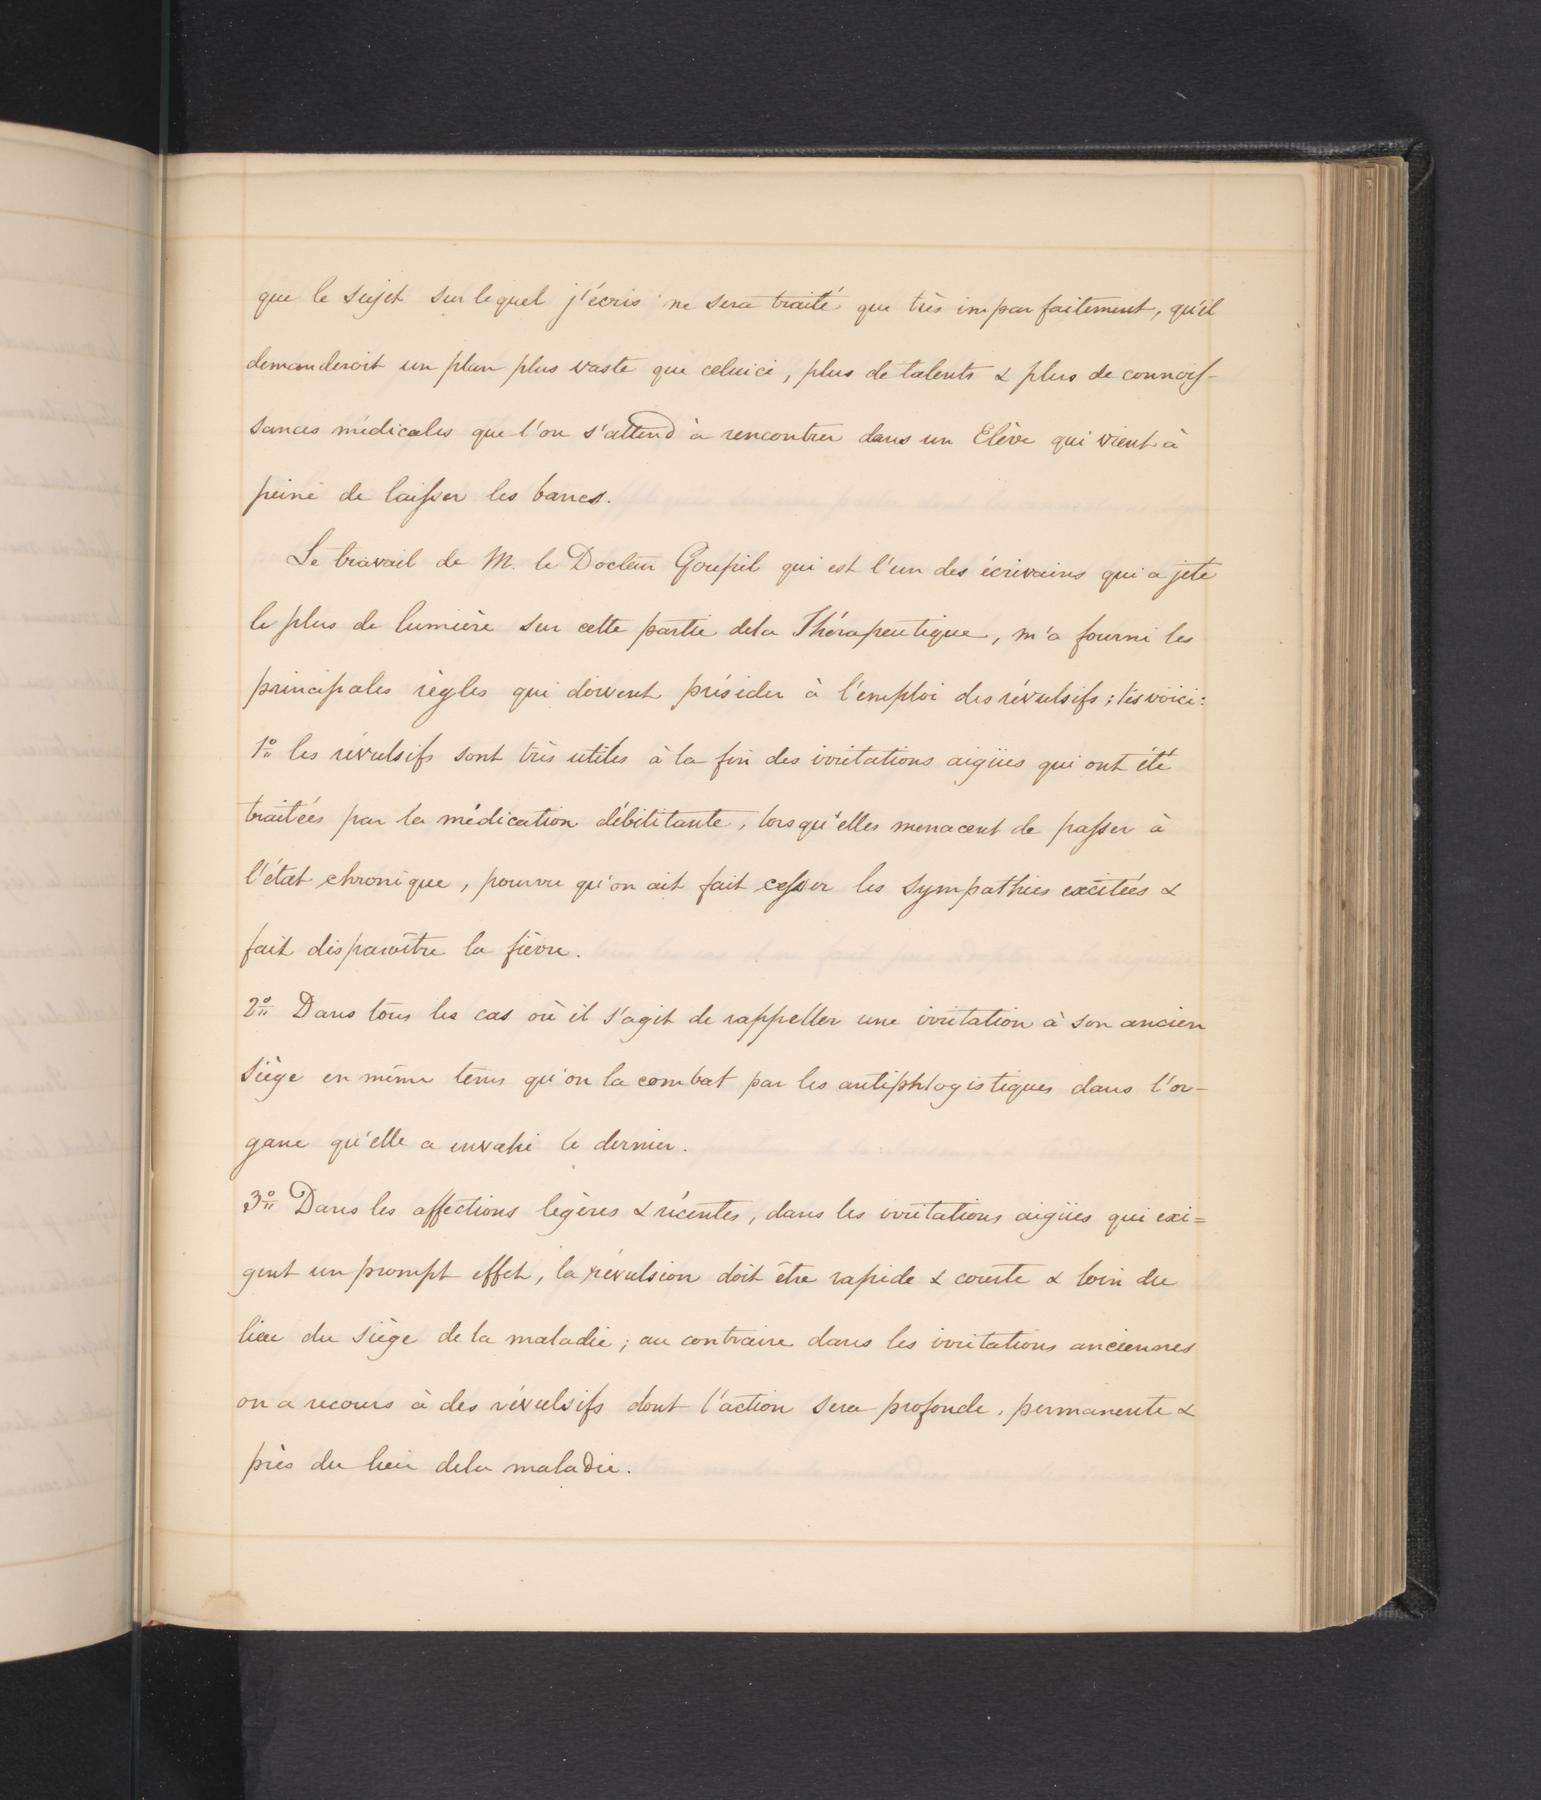 que le sujet sur lequel j'écris ne sera traité que très imparfaitement, qu'il
demanderoit un plan plus vaste que celuici, plus de talents & plus de connois-
sances médicales que l'on s'attend à rencontrer dans un Elève qui vient à
peine de laisser les bancs.
Le travail de M. le Docteur Goupil qui est l'un des écrivains qui a jeté
le plus de lumière sur cette partie dela Thérapeutique, m'a fourni les
principales règles qui doivent présider à l'emploi des révulsifs; les voici:
1º les révulsifs sont très utiles à la fin des irritations aigües qui ont été
traitées par la médication débilitante, lorsqu'elles menacent de passer à
l'état chronique, pourvu qu'on ait fait cesser les sympathies excitées &
fait disparaître la fièvre.
2º Dans tous les cas où il s'agit de rappeller une irritation à son ancien
siège en même tems qu'on la combat par les antiphlogistiques dans l'or-
gane qu'elle a envahi le dernier.
3º Dans les affections légères & récentes, dans les irritations aigües qui exi=
gent un prompt effet, la révulsion doit être rapide & courte & loin du
lieu du siège de la maladie; au contraire dans les irritations anciennes
on a recours à des révulsifs dont l'action sera profonde, permanente &
près du lieu dela maladie.